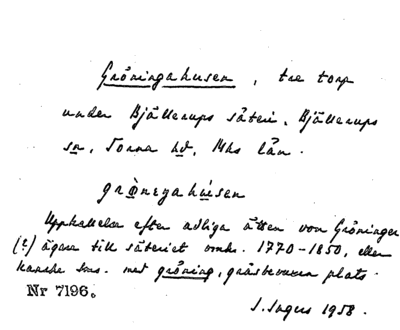 Gröningahusen, tre torp
under Bjällerups säteri, Bjällerups
sn, Torna hd, Mhs län.
Uppkallelse efter adliga ätten von Gröninger
(?) ägare till säteriet omkr. 1770-1850, eller
kanske sms. med gröning, gräsbevuxen plats.
Nr 7196.
I. Ingers 1958.